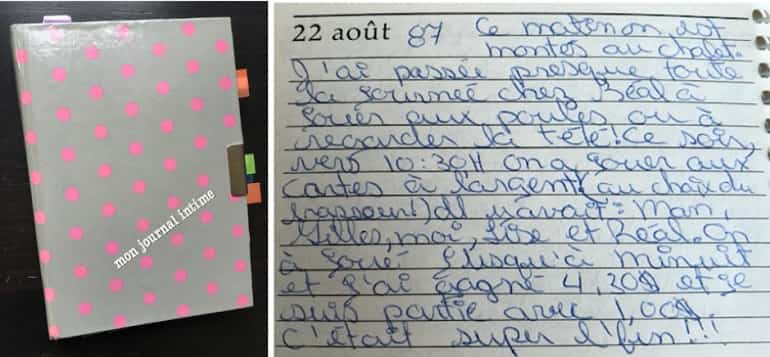 mon journal intime
22 août 87 Ce matin on est
montés au chalet.
J'ai passée presque toute
la journée chez Réal à
joués aux poules ou à
regardés la télé! Ce soir,
vers 10:30H on a jouer aux
cartes à l'argent! (au choix du
brasseur!) Il y avait: Man,
Gilles, moi, Lise et Réal. On
à joué jusqu'à minuit
et j'ai gagné 4,20$ et je
suis partie avec 1,00$.
C'était super l'fin!!!